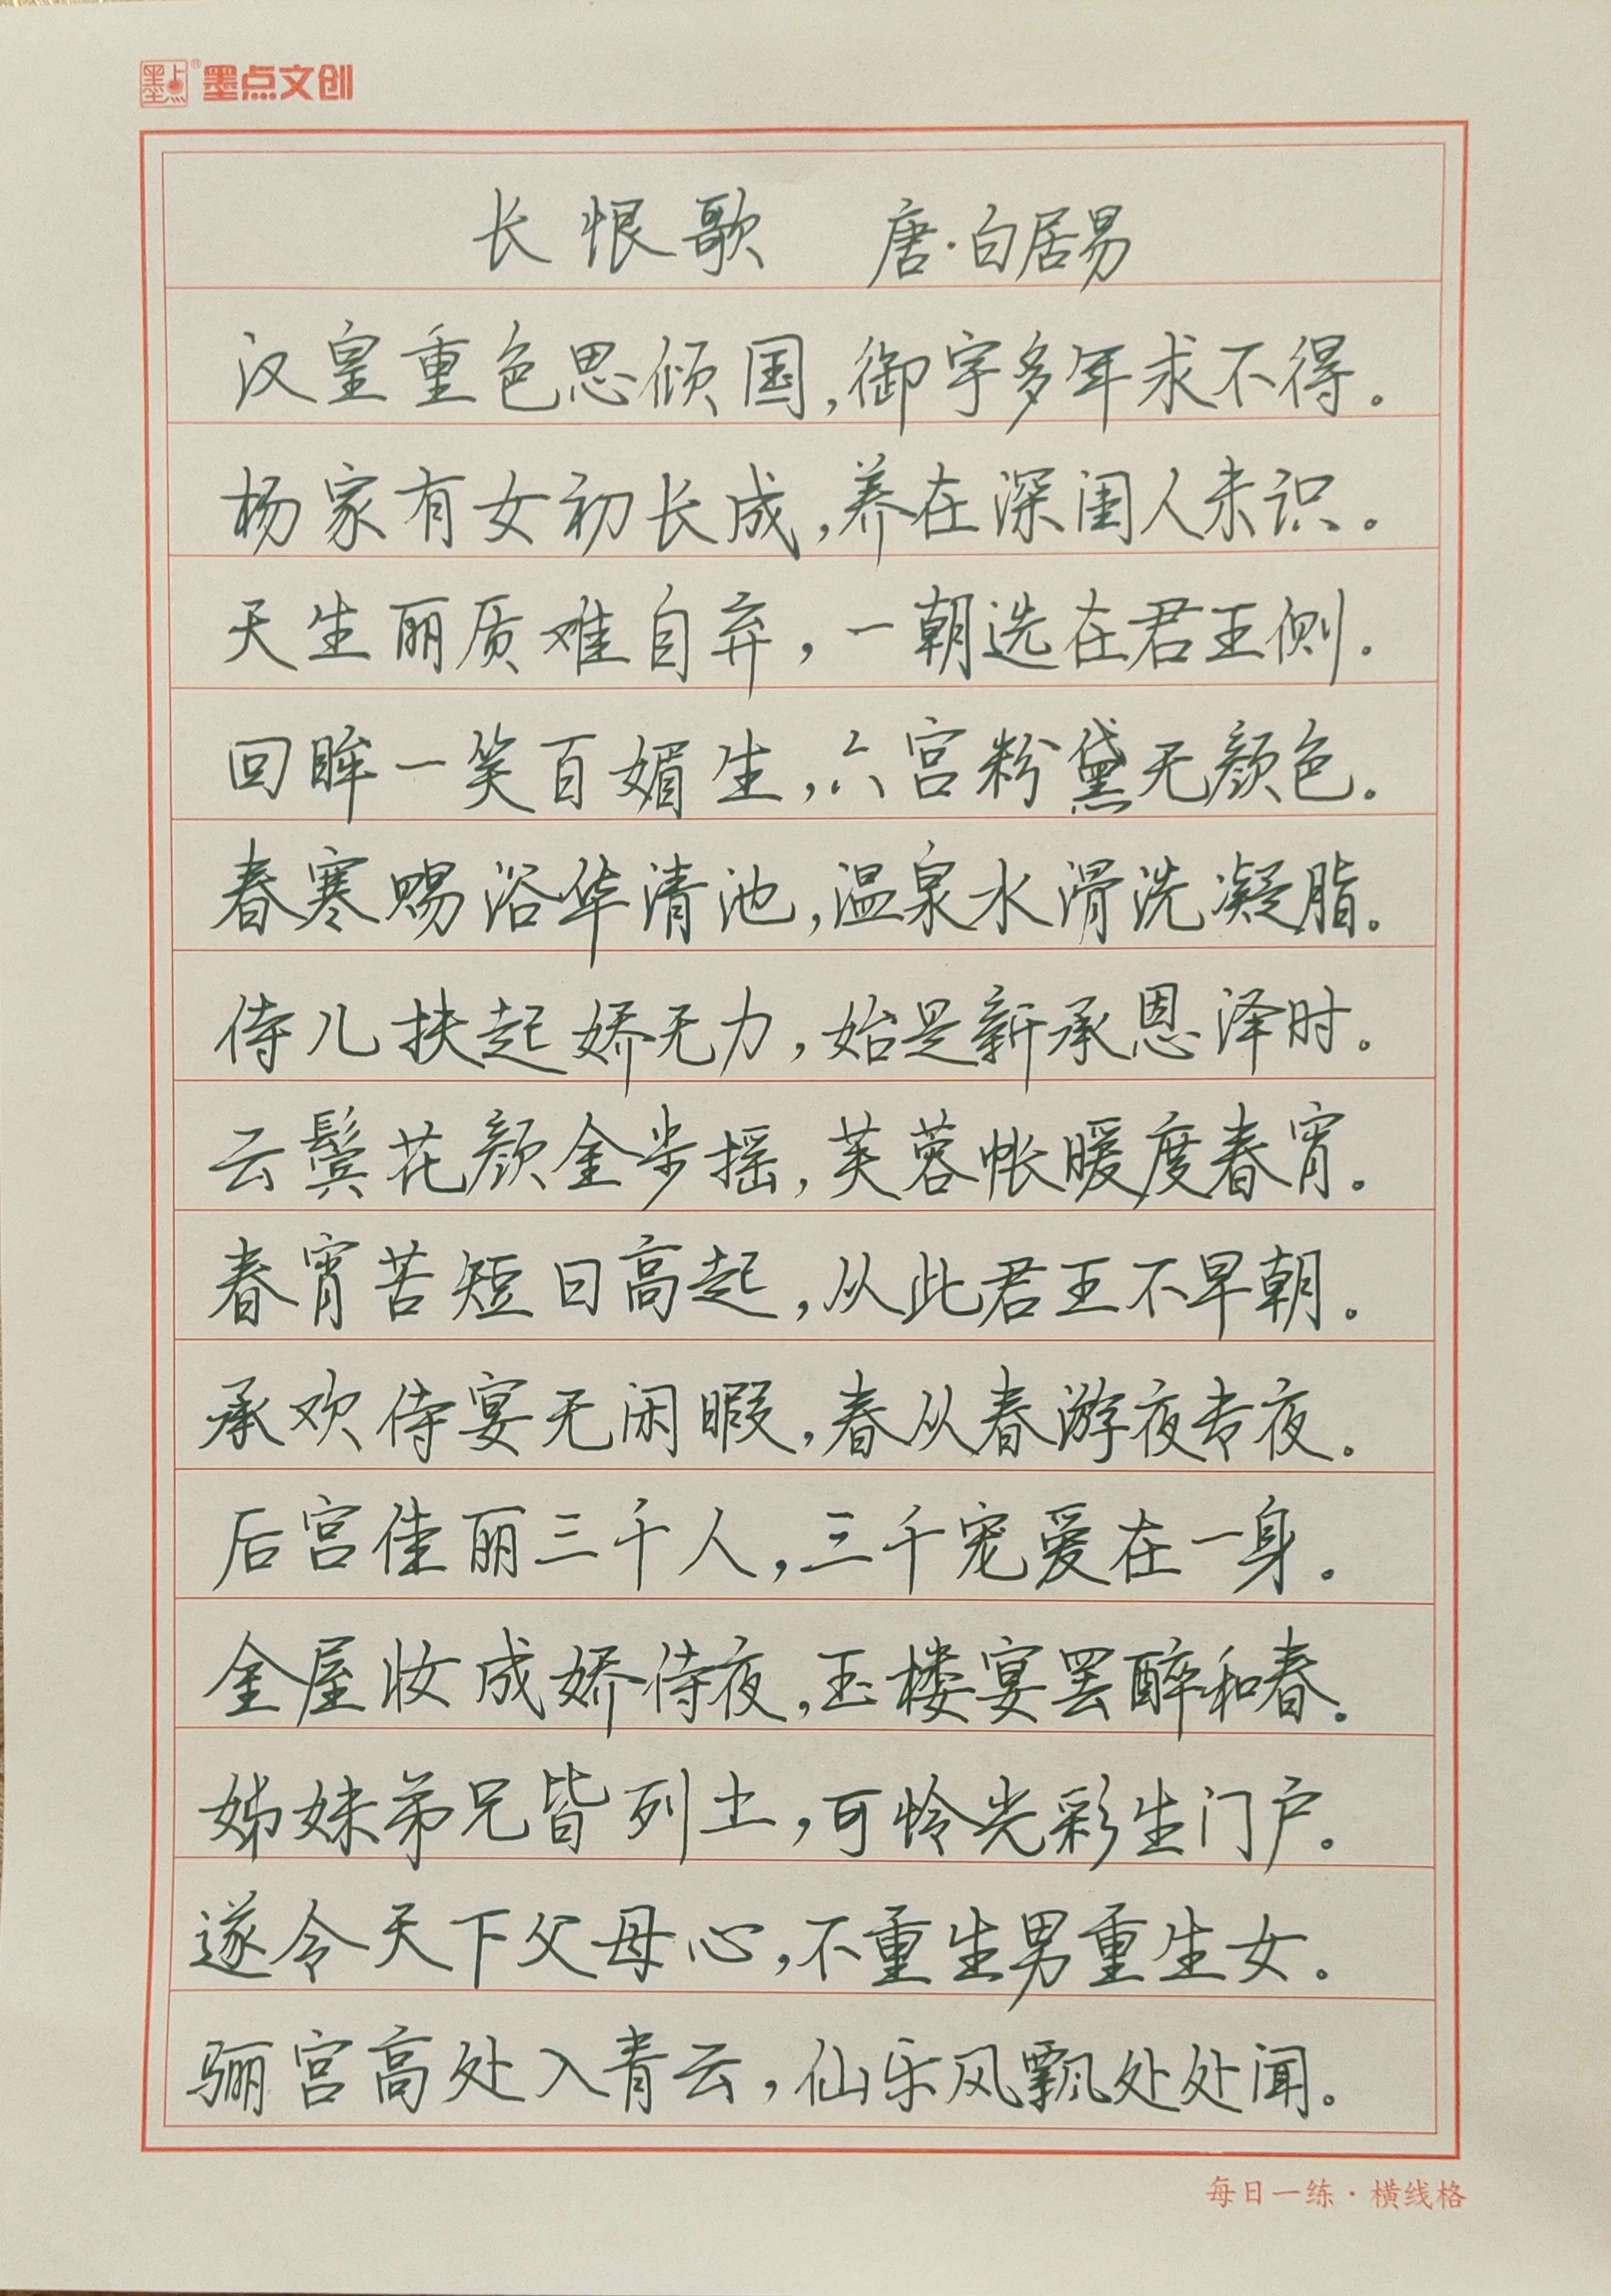 墨点® 墨点文创
长恨歌 唐·白居易
汉皇重色思倾国,御宇多年求不得。
杨家有女初长成,养在深闺人未识。
天生丽质难自弃,一朝选在君王侧。
回眸一笑百媚生,六宫粉黛无颜色。
春寒赐浴华清池,温泉水滑洗凝脂。
侍儿扶起娇无力,始是新承恩泽时。
云鬓花颜金步摇,芙蓉帐暖度春宵。
春宵苦短日高起,从此君王不早朝。
承欢侍宴无闲暇,春从春游夜专夜。
后宫佳丽三千人,三千宠爱在一身。
金屋妆成娇侍夜,玉楼宴罢醉和春。
姊妹弟兄皆列土,可怜光彩生门户。
遂令天下父母心,不重生男重生女。
骊宫高处入青云,仙乐风飘处处闻。
每日一练·横线格